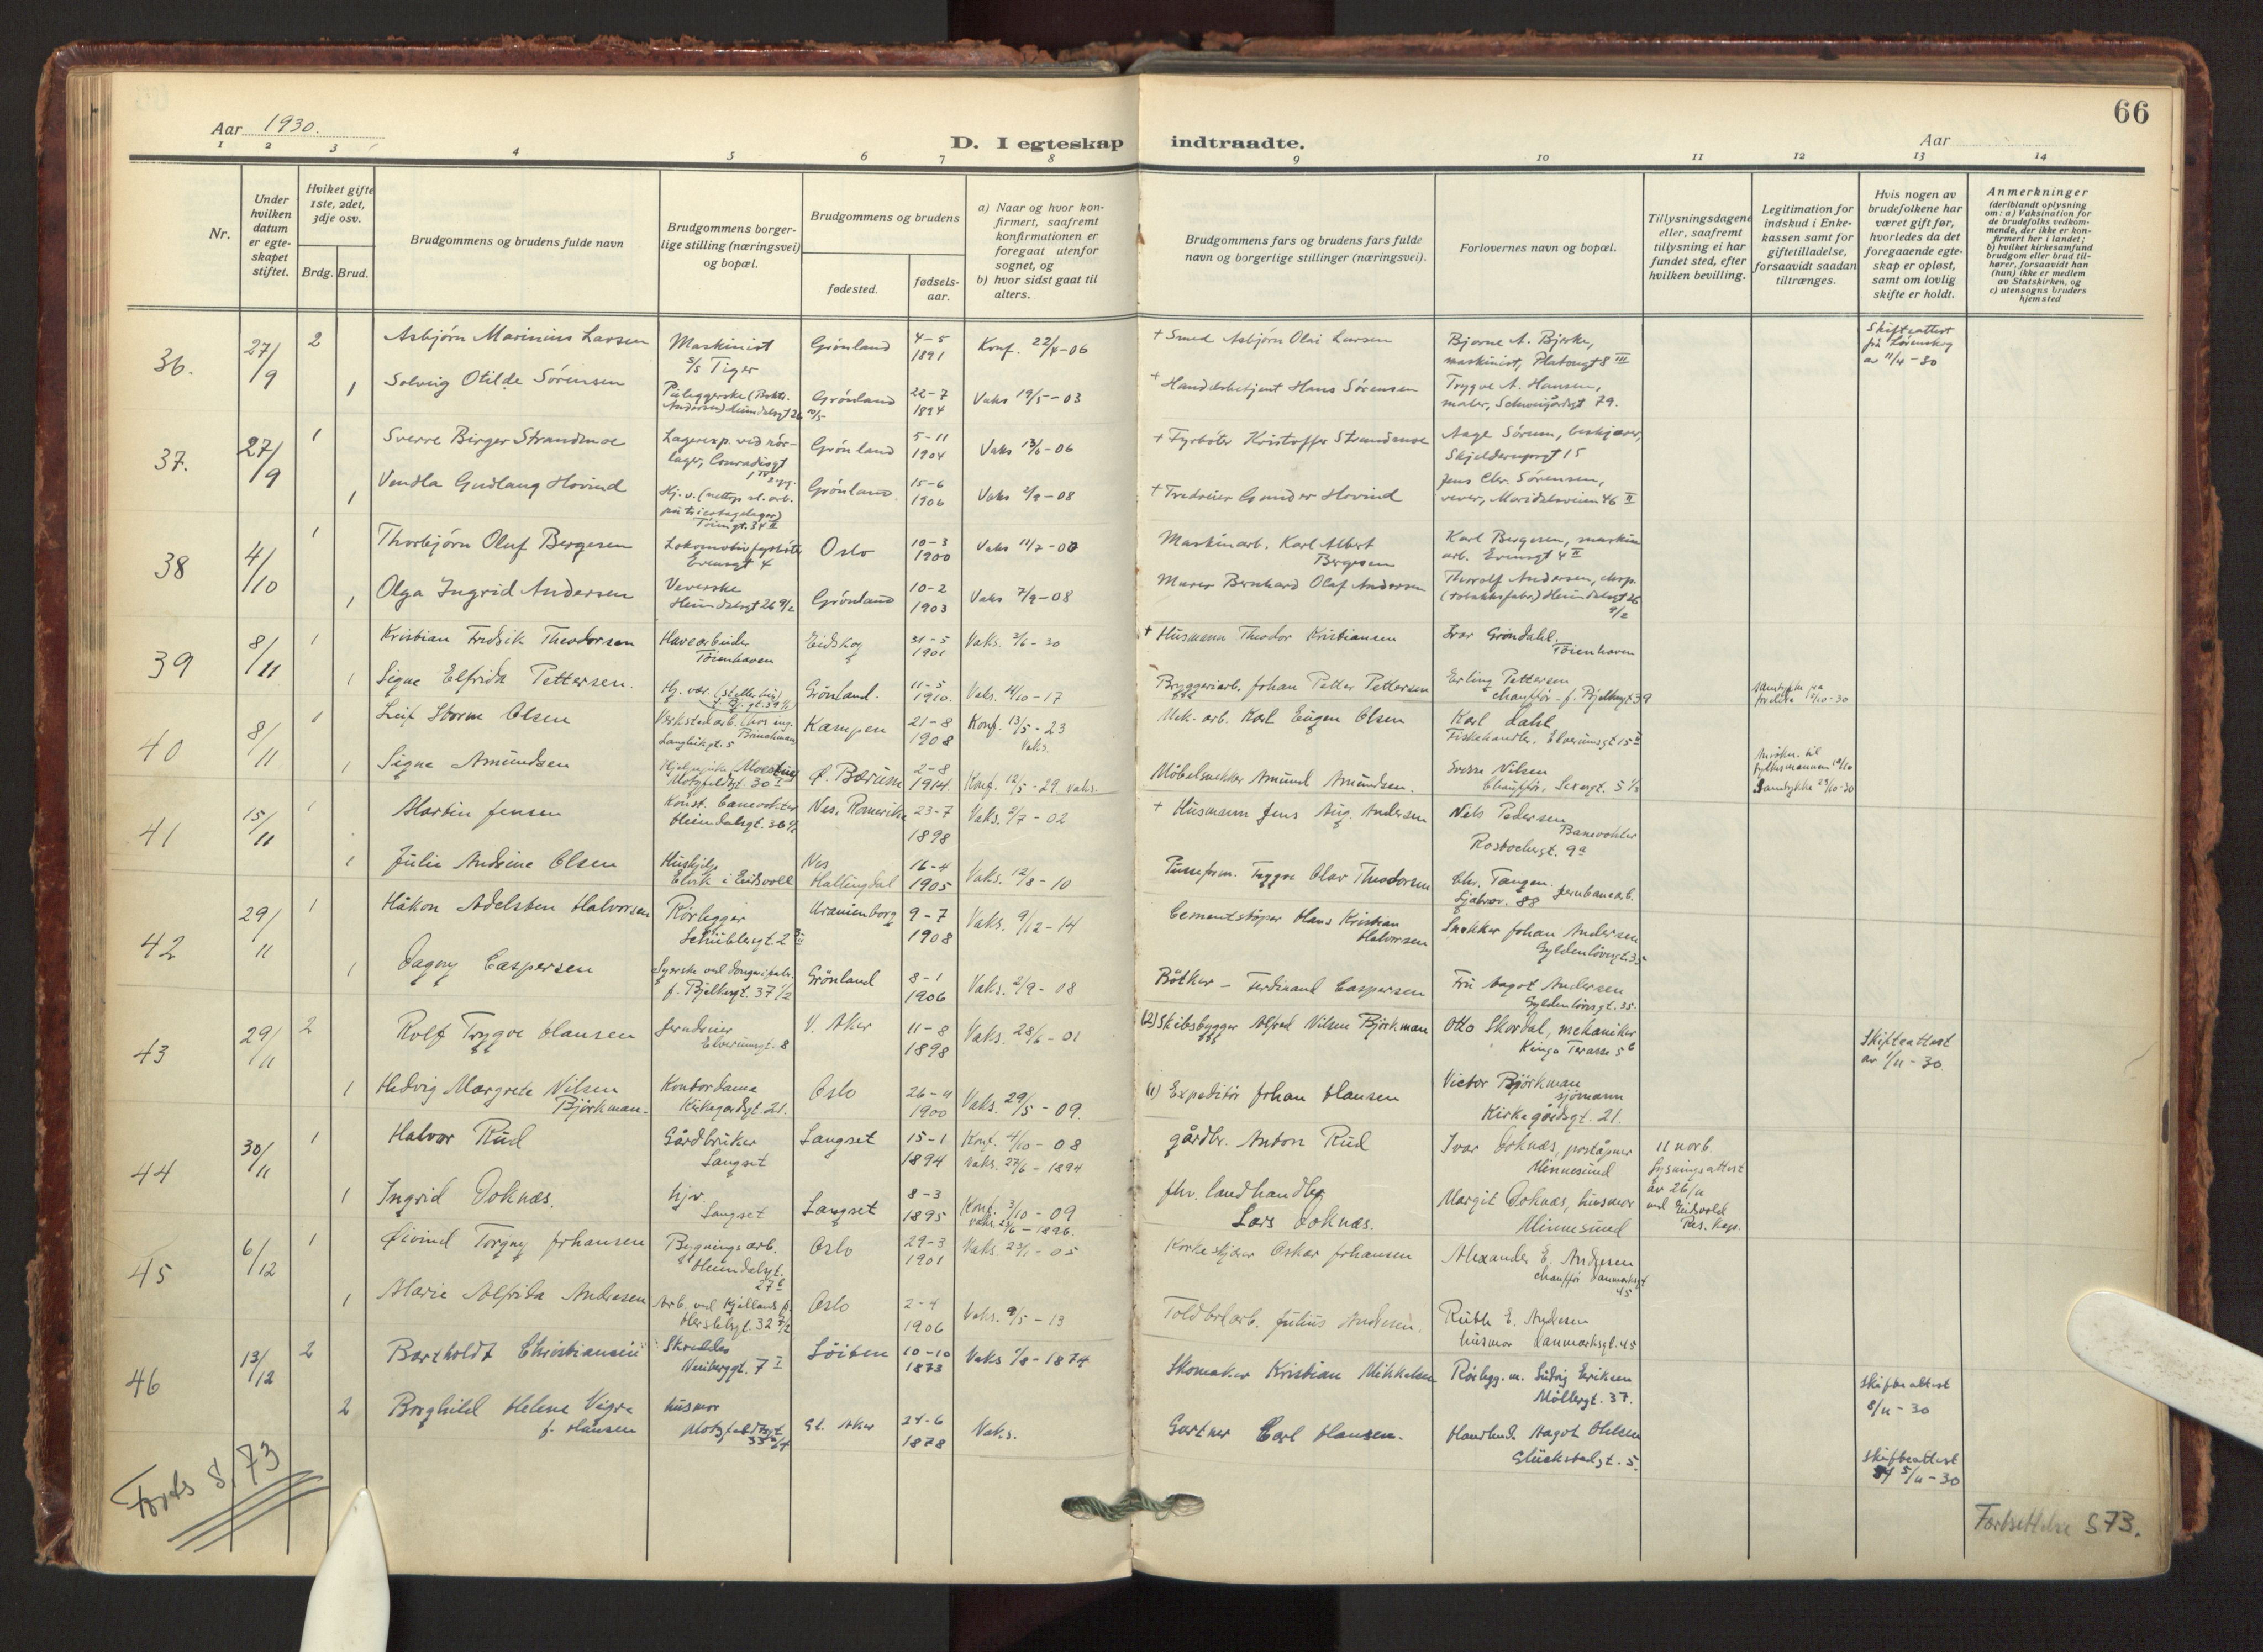 66
Aar 1930.
D. I egteskap indtraadte.
Aar
1 2 3 4 5 6 7 8 9 10 11 12 13 14
Nr.
Under hvilken datum er egteskapet stiftet.
Hviket gifte 1ste, 2det, 3dje osv.
Brdg. Brud.
Brudgommens og brudens fulde navn
Brudgommens borgerlige stilling (næringsvei) og bopæl.
Brudgommens og brudens
fødested.
fødselsaar.
a) Naar og hvor konfirmert, saafremt konfirmationen er foregaat utenfor sognet, og
b) hvor sidst gaat til alters.
Brudgommens fars og brudens fars fulde navn og borgerlige stillinger (næringsvei).
Forlovernes navn og bopæl.
Tillysningsdagene eller, saafremt tillysning ei har fundet sted, efter hvilken bevilling.
Legitimation for indskud i Enkekassen samt for giftetilladelse, forsaavidt saadan tiltrænges.
Hvis nogen av brudefolkene har været gift før, hvorledes da det foregaaende egteskap er opløst, samt om lovlig skifte er holdt.
Anmerkninger
(deriblandt oplysning om: a) Vaksination for de brudefolks vedkommende, der ikke er konfirmert her i landet; b) hvilket kirkesamfund brudgom eller brud tilhører, forsaavidt han (hun) ikke er medlem av Statskirken, og c) utensogns bruders hjemsted
36. 27/9 2 Asbjörn Marinius Larsen Maskinist S/s Tiger Grönland 4-5 1891 Konf. 22/4-06 + Smed Asbjörn Olai Larsen Bjarne A. Bjerke, maskinist, Platousgt 8 III Skifteattest fra Lörenskog av 11/4-30
1 Solveig Otilde Sörensen Grönland 22-7 1894 Vaks 19/5-03 + Handelsbetjent Hans Sörensen Trygve A. Hansen, maler, Schweigårdsgt 79.
37. 27/9 1 Sverre Birger Strandmoe Lagerexp. ved rörlager, Conradisgt Grönland 5-11 1904 Vaks 13/6-06 + Fyrböter Kristoffer Strandmoe Aage Sörum, Skjeldernupsgt 15
1 Vendla Gudlaug Hovind Töiengt. 34 II Grönland 15-6 1906 Vaks 2/9-08 + Gunder Hovind Jens Chr. Sörensen, vever, Maridalsveien 46 II
38 4/10 1 Thorbjörn Oluf Bergesen Lokomotivfyrböter Evensgt 4 Oslo 10-3 1900 Vaks 11/7-00 Maskinarb. Karl Albert Bergesen Karl Bergesen, maskinarb. Evensgt 4 II
1 Olga Ingrid Andersen Veverske Heimdalsgt 26 Grönland 10-2 1903 Vaks 7/9-08 Murer Bernhard Olaf Andersen Thorolf Andersen, eksp. (tobakksfabr.) Heimdalsgt 26
39 8/11 1 Kristian Fredrik Theodorsen Havearbeider Töienhaven Eidskog 31-5 1901 Vaks. 3/6-30 + Husmann Theodor Kristiansen Ivar Gröndahl. Töienhaven
1 Signe Elfrida Pettersen. Grönland. 11-5 1910. Vaks. 4/10-17 Bryggeriarb. Johan Petter Pettersen Erling Pettersen chauffør - J. Bjelkesgt 39 Samtykke fra foreldre 10-30
40 8/11 1 Leif Storm Olsen Verkstedarb. (hos ing. Brinchmann) Langleikgt. 5 Kampen 21-8 1908 Konf. 13/5-23 Vaks. Mek. arb. Karl Eugen Olsen Karl Dahl Fiskehandler, Elverumsgt 15
1 Signe Amundsen Motzfeldtsgt. 30 I Ø. Bærum 2-8 1914. Konf. 12/5-29 vaks. Möbelsnekker Amund Amundsen. Sverre Nilsen Chauffør, Samtykke 29/10-30
41 15/11 1 Martin Jensen Konst. banevokter Heimdalsgt. 36 Nes, Romerike 23-7 1898 Vaks. 2/7-02 + Husmann Jens Aug. Andersen Nils Pedersen Banevokter Rostocksgt. 9a
1 Julie Andrine Olsen Hushjelp Elvik i Eidsvoll Nes Hallingdal 16-4 1905 Vaks. 12/8-10 Trygve Olav Theodorsen Chr. Tangen. jernbanearb. Ljabrov. 88
42 29/11 1 Håkon Adelsten Halvorsen Rörlegger Schüblersgt. 2 Uranienborg 9-7 1908 Vaks. 9/12-14 Cementstöper Hans Kristian Halvorsen Snekker Johan Andersen Gyldenlövesgt. 35
1 Dagny Caspersen J. Bjelkesgt. 37 1/2 Grönland 8-1 1906 Vaks. 2/9-08 Bötker - Ferdinand Caspersen Fru Aagot Andersen Gyldenlövesgt. 35.
43 29/11 2 Rolf Trygve Hansen Jerndreier Elverumsgt. 8 V. Aker 11-8 1898 Vaks. 28/6-01 (2) Skibsbygger Alfred Nilsen Björkman Otto Skordal, mekaniker Kings Terasse 5 Skifteattest av 1/11-30.
1 Hedvig Margrete Nilsen Björkman. Kontordame Kirkegårdsgt. 21. Oslo 26-4 1900 Vaks. 29/5-09. (1) Expeditör Johan Hansen Victor Björkman sjömann Kirkegårdsgt. 21.
44 30/11 1 Halvor Rud Gårdbruker Langset Langset 15-1 1894 Konf. 4/10-08 Vaks. 27/6-1894 gårdbr. Anton Rud Ivar Doknæs, poståpner Minnesund Lysningsattest av 26/11 ved Eidsvold Res. kap.
1 Ingrid Doknæs. hjv. Langset Langset 8-3 1895 Konf. 3/10-09 vaks. 6-1896. fhv. landhandler Lars Doknæs. Margit Doknæs, husmor Minnesund
45 6/12 1 Öivind Torgny Johansen Bygningsarb. Heimdalsgt. 27 Oslo 29-3 1901 Vaks. 23/1-05 Korkeskjærer Oskar Johansen Alexander E. Andresen chauffør Danmarksgt 45
1 Marie Alfrida Andresen Herslebsgt. 32 Oslo 2-4 1906 Vaks. 9/5-13 Julius Andresen. Ruth E. Andresen husmor Danmarksgt. 45
46 13/12 2 Bertholdt Christiansen Skredder Neuberggt. 7 I Löiten 10-10 1873 Vaks 1/8-1874 Skomaker Kristian Mikkelsen Rörlegg. m. Ludvig Eriksen Möllergt. 37. Skifteattest 8/11-30
2 Borghild Helene Vegre f. Hansen husmor Motzfeldtsgt Gl. Aker 24-6 1878 Vaks. Gartner Carl Hansen. Aagot Ohlsen Glückstadgt. 5. Skifteattest 5/11-30
Forts S. 73
Fortsettelse S 73.